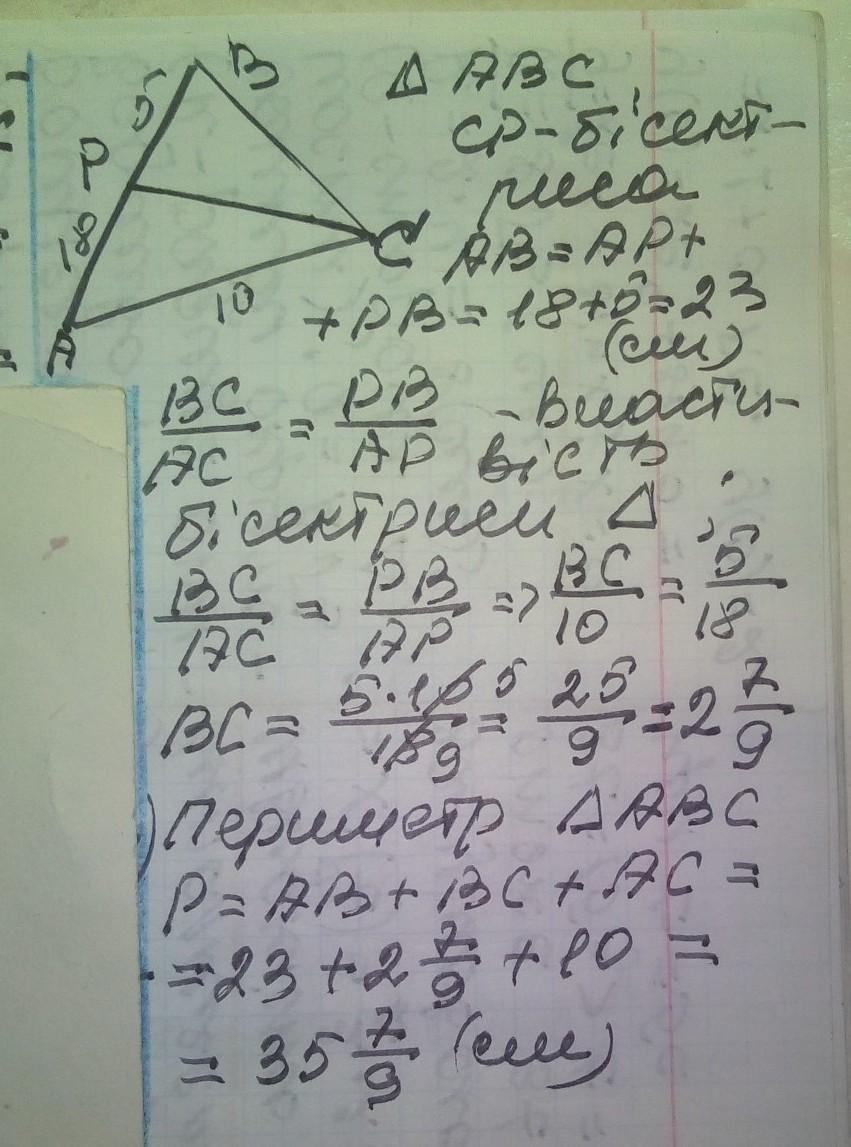 B
5
P
18
A
10
C
Δ ABC
CP - бісект-
риса
AB = AP +
+ PB = 18 + 5 = 23
(см)
BC/AC = PB/AP - власти-
вість
бісектриси Δ;
BC/AC = PB/AP => BC/10 = 5/18
BC = 5·10 5/18 9 = 25/9 = 2 7/9
) Периметр ΔABC
P = AB + BC + AC =
= 23 + 2 7/9 + 10 =
= 35 7/9 (см)